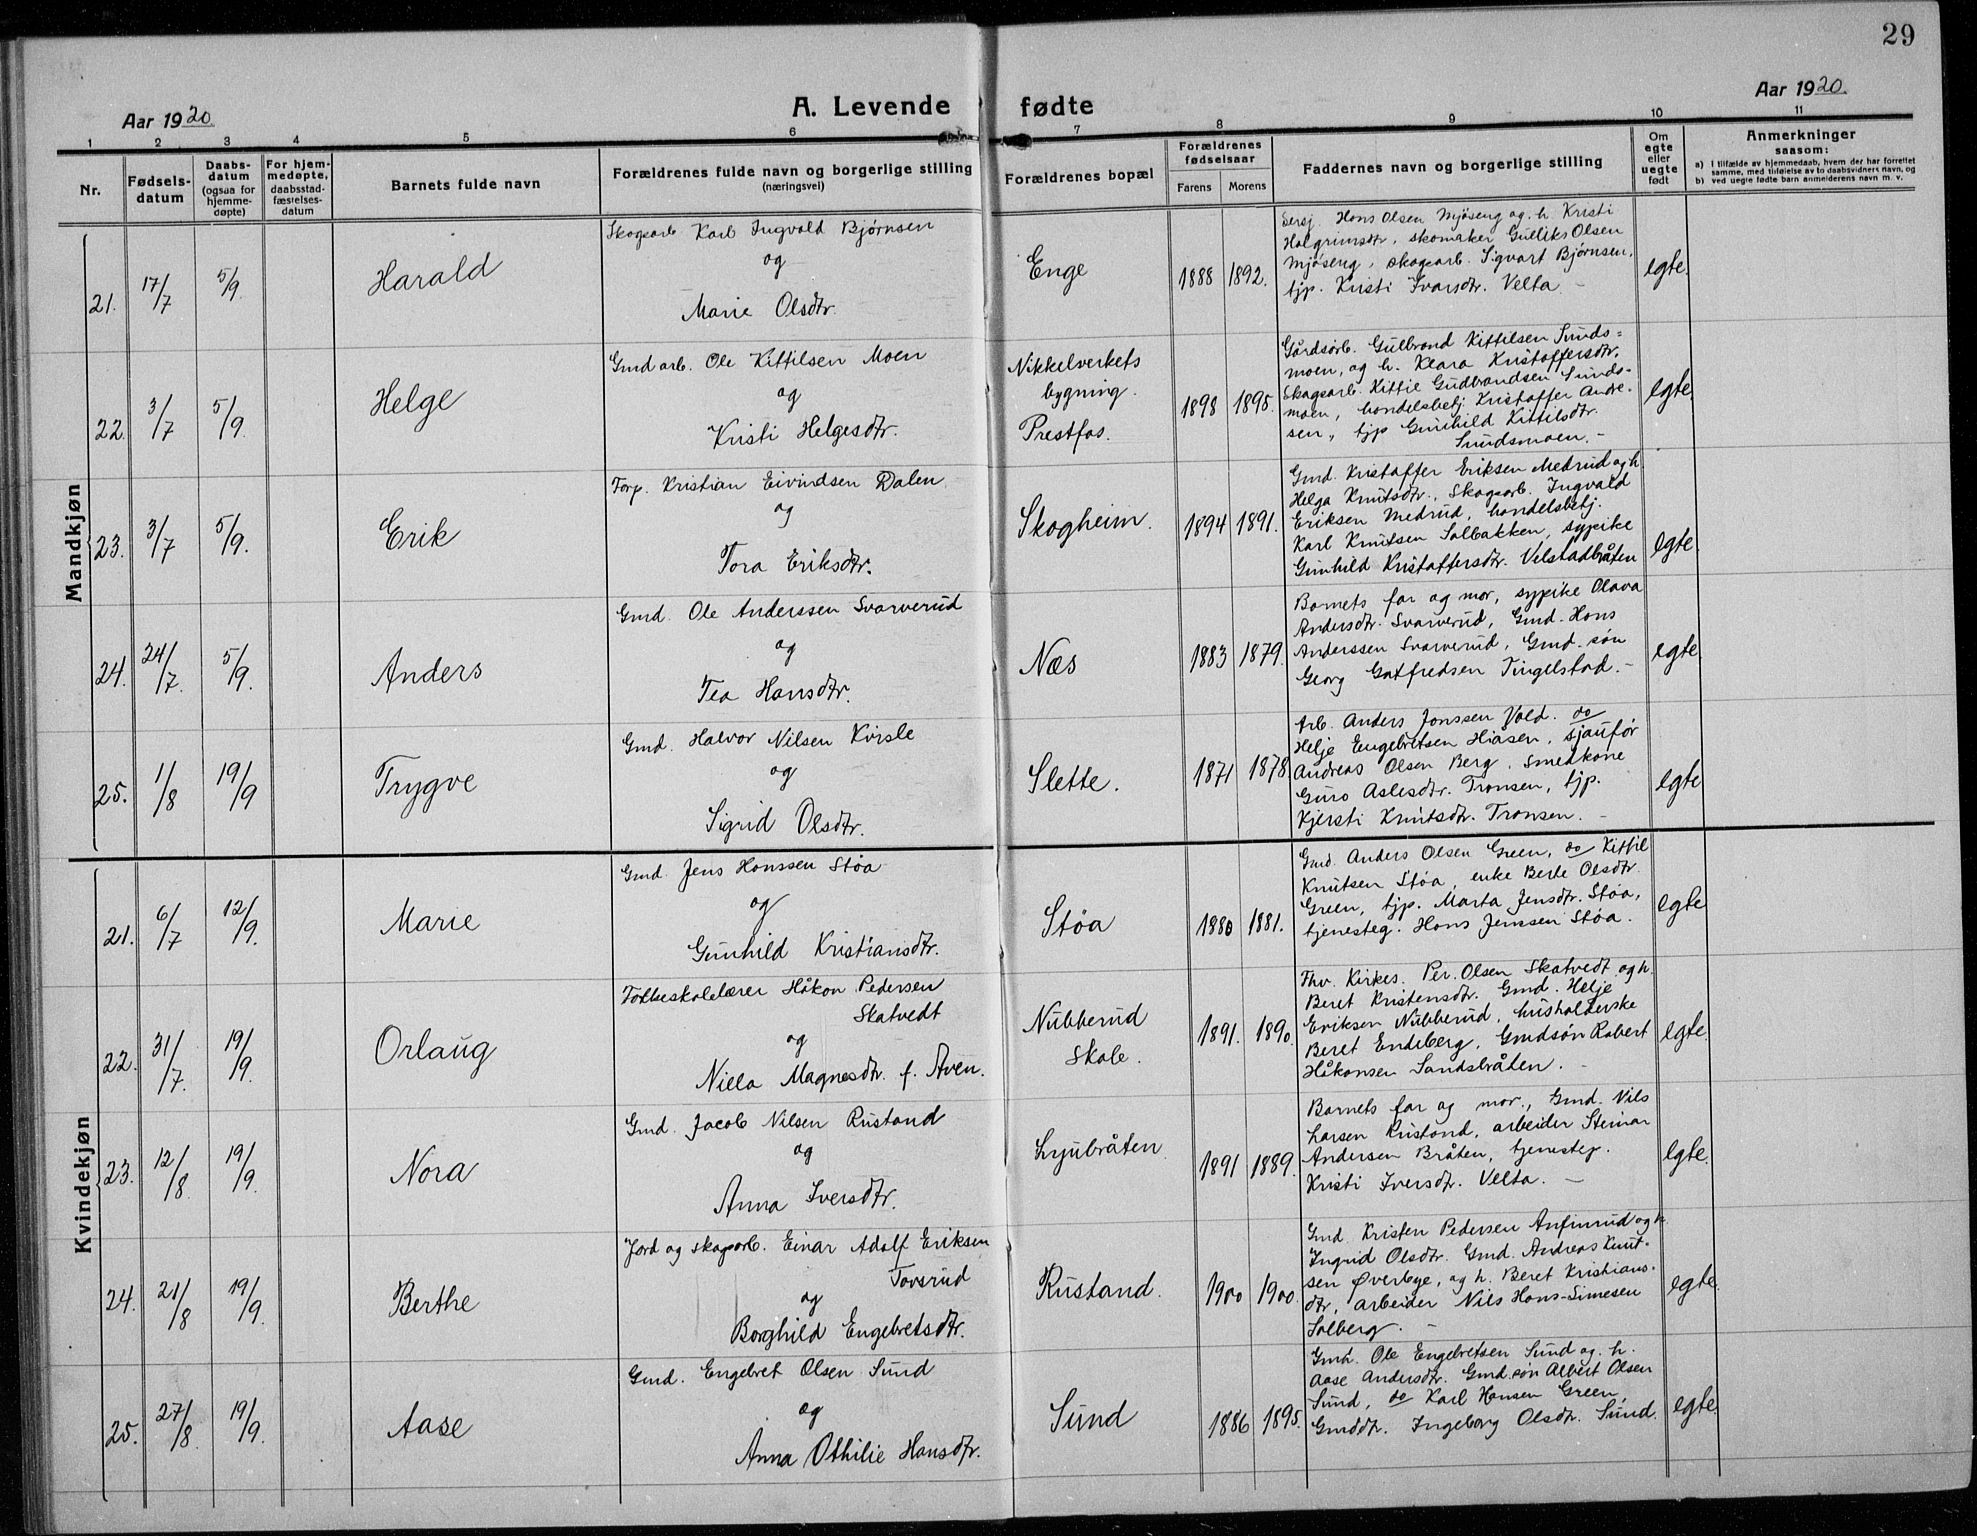 29
Aar 1920
A. Levende fødte
Aar 1920.
1 2 3 4 5 6 7 8 9 10 11
Nr.
Fødsels-
datum
Daabs-
datum
(ogsaa for
hjemme-
døpte)
For hjem-
medøpte,
daabsstad-
fæstelses-
datum
Barnets fulde navn
Forældrenes fulde navn og borgerlige stilling
(næringsvei)
Forældrenes bopæl
Forældrenes
fødselsaar
Farens
Morens
Faddernes navn og borgerlige stilling
Om
egte
eller
uegte
født
Anmerkninger
saasom:
a) I tilfælde av hjemmedaab, hvem der har forrettet
samme, med tilføielse av to daabsvidners navn, og
b) ved uegte fødte barn anmelderens navn m. v.
Mandkjøn
21. 17/7 5/9. Harald
Skogsarb Karl Ingvald Bjørnsen
og
Marie Olsdtr.
Enge
1888 1892.
Hans Olsen Mjøseng og h. Kristi
Halgrimsdtr, skomaker Gulliks Olsen
Mjøseng, skogsarb. Sigvart Bjørnsen,
tjp. Kristi Ivarsdtr. Velta. -
egte.
22. 3/7 5/9. Helge
Gmd arb. Ole Kittilsen Moen
og
Kristi Helgesdtr.
Nikkelverkets
bygning.
Prestfos.
1898 1895.
Gårdsarb. Gulbrand Kittilsen Sunds=
moen, og h. Klara Kristoffersdtr,
Skogsarb. Kittil Gudbrandsen Sunds-
moen, handelsbetj. Kristoffer Andre-
sen, tjp Gunhild Kittilsdtr.
Sundsmoen. -
egte
23. 3/7 5/9. Erik
Torp. Kristian Eivindsen Dalen
og
Tora Eriksdtr.
Skogheim.
1894 1891.
Gmd. Kristoffer Eriksen Medrud og h.
Helga Knutsdtr., Skogsarb. Ingvald
Eriksen Medrud, handelsbetj.
Karl Knutsen Solbakken, sypike
Gunhild Kristoffersdtr. Velstadbråten
egte.
24. 24/7. 5/9. Anders
Gmd. Ole Anderssen Svarverud
og
Tea Hansdtr.
Næs
1883 1879.
Barnets far og mor, sypike Olava
Andersdtr. Svarverud, Gmd. Hans
Anderssen Svarverud, Gmd. søn
Georg Gotfredsen Tingelstad. -
egte.
25. 1/8 19/9 Trygve
Gmd. Halvor Nilsen Kvisle
og
Sigrid Olsdtr.
Slette.
1871 1878
Arb. Anders Jonssen Vold. do
Helje Engebretsen Hiåsen, sjaufør
Andreas Olsen Berg, smedkone
Guro Aslesdtr. Tronsen, tjp.
Kjersti Knutsdtr. Tronsen. -
egte
Kvindekjøn
21. 6/7 12/9. Marie
Gmd. Jens Hanssen Støa
og
Gunhild Kristiansdtr.
Støa
1880 1881.
Gmd. Anders Olsen Green, do Kittil
Knutsen Støa, enke Berte Olsdtr.
Green, tjp. Marta Jensdtr. Støa,
tjenesteg. Hans Jenssen Støa.
egte
22. 31/7. 19/9. Orlaug
Folkeskolelærer Håkon Pedersen
Skatvedt
og
Niela Magnesdtr. f. Aven.
Nubberud
Skole.
1891. 1890.
Fhv. Kirkes. Per. Olsen Skatvedt og h.
Beret Kristensdtr. Gmd. Helje
Eriksen Nubberud, husholderske
Beret Endeberg, Gmdsøn Robert
Håkonsen Sandsbråten. -
egte.
23. 12/8. 19/9. Nora
Gmd. Jacob Nilsen Rustand
og
Anna Iversdtr.
Ljubråten.
1891 1889.
Barnets far og mor., Gmd. Nils
Larsen Rustand, arbeider Steinar
Andersen Bråten, tjenestep.
Kristi Iversdtr. Velta. -
egte.
24. 21/8 19/9. Berthe
Jord og skogsarb. Einar Adolf Eriksen
Tovsrud
og
Borghild Engebretsdtr.
Rustand.
1900 1900.
Gmd. Kristen Pedersen Anfinrud og h.
Ingrid Olsdtr. Gmd. Andreas Knut-
sen Øverbye, og h. Beret Kristians-
dtr, arbeider Nils Hans-Simesen
Solberg. -
egte.
25. 27/8. 19/9. Aase
Gmd. Engebret Olsen Sund
og
Anna Othilie Hansdtr.
Sund
1886 1895.
Gmd. Ole Engebretsen Sund og. h.
Aase Andersdtr. Gmd.søn Albert Olsen
Sund, do Karl Hansen Green,
Gmddtr. Ingeborg Olsdtr. Sund.
egte.